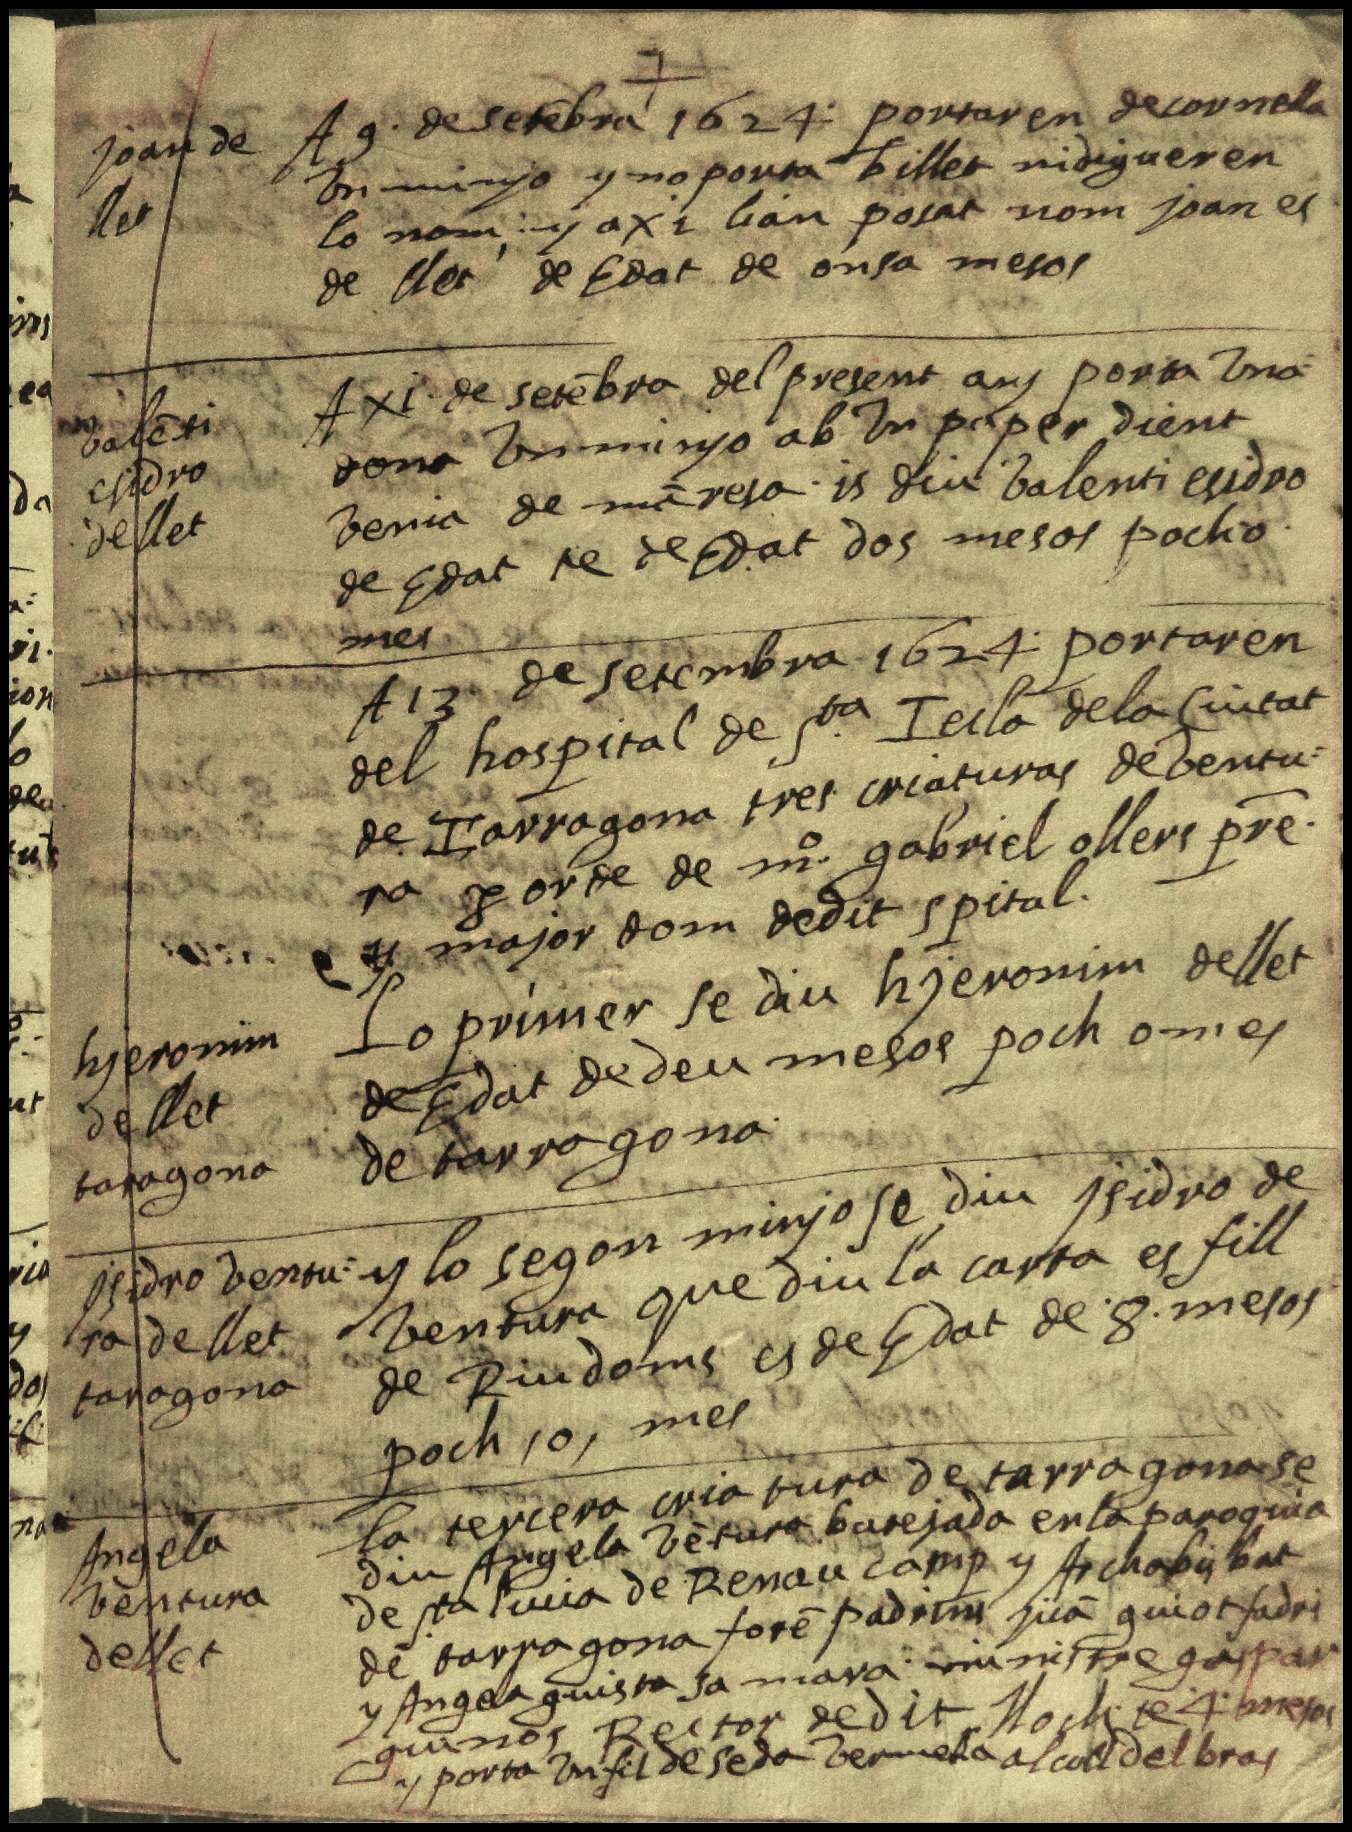 joan de
llet
A 9. de setēbra 1624: portaren de cornella
Un minyo y no porta billet ni digueren
lo nom; y axi lian posat nom joan es
de llet de Edat de onsa mesos
valēti
esidro
de llet
A xi. de setēbra del present any porta Una
dona Un minyo ab Un paper dient
venia de māresa. is diu Valenti esidro
de Edat te de Edat dos mesos poch o
mes
A 13 de setembra 1624: portaren
del hospital de Sta. Tecla de la Ciutat
de Tarragona tres criaturas de Ventu-
ra per orde de mo. gabriel ollers prē.
y major dom de dit spital.
hjeronim
de llet
taragona
Lo primer se diu hjeronim de llet
de Edat de deu mesos poch o mes
de tarragona
jsidro ventu-
ra de llet
taragona
y lo segon minyo se diu jsidro de
Ventura que diu la carta es fill
de Riudoms es de Edat de 8. mesos
poch ,o, mes
Angela
Ventura
de llet
la tercera criatura de tarragona se
diu Angela Vētura batejada en la paroquia
de Sta llucia de Renau camp y Archabisbat
de tarragona forē padrins juā guiot fadri
y Angela guista sa mara ministre gaspar
guinos Rector de dit lloch te 4 mesos
y porta Un fil de seda vermella al coll del bras